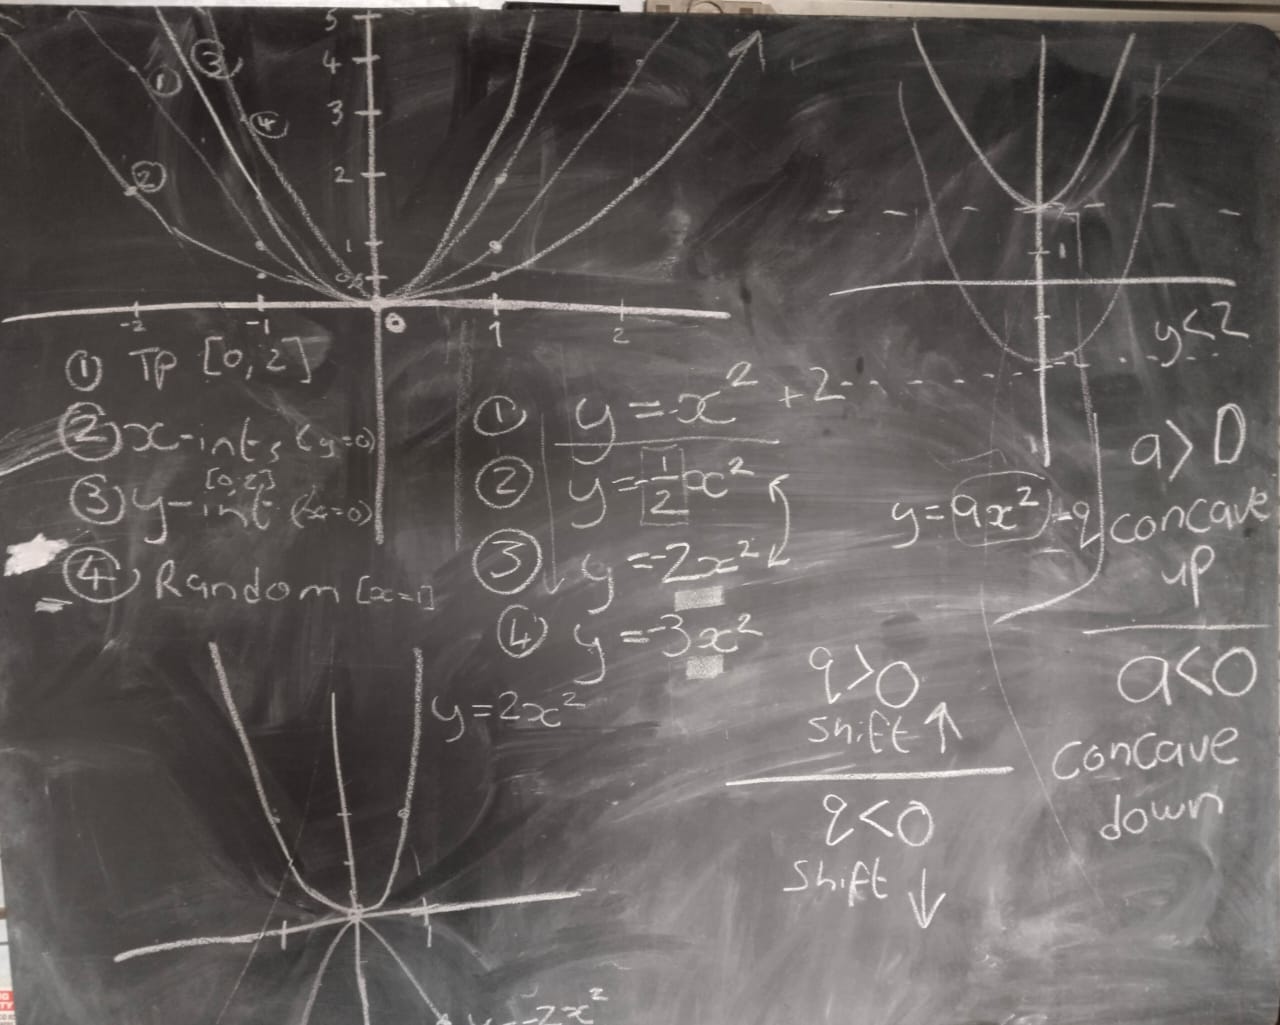 5
4
3
2
1
0,5
-2 -1 0 1 2
① ② ③ ④
① TP [0,2]
② x-ints (y=0)
[0,2]
③ y-int (x=0)
④ Random [x=1]
① y = x² +2
② y = -1/2 x²
③ y = -2x²
④ y = -3x²
y=2x²
y=-2x²
1
-2
y<2
y=ax²+q
a>0
concave
up
a<0
concave
down
q>0
shift ↑
q<0
shift ↓